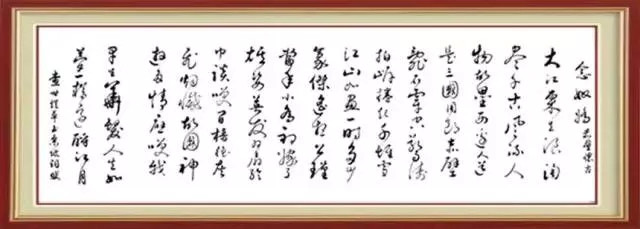 念奴嬌 赤壁懷古
大江東去浪淘
盡千古風流人
物故壘西邊人道
是三國周郎赤壁
亂石穿空驚濤
拍岸捲起千堆雪
江山如畫一時多少
豪傑遙想公瑾
當年小喬初嫁了
雄姿英發羽扇綸
巾談笑間檣櫓灰
飛煙滅故國神
遊多情應笑我
早生華髮人生如
夢一樽還酹江月